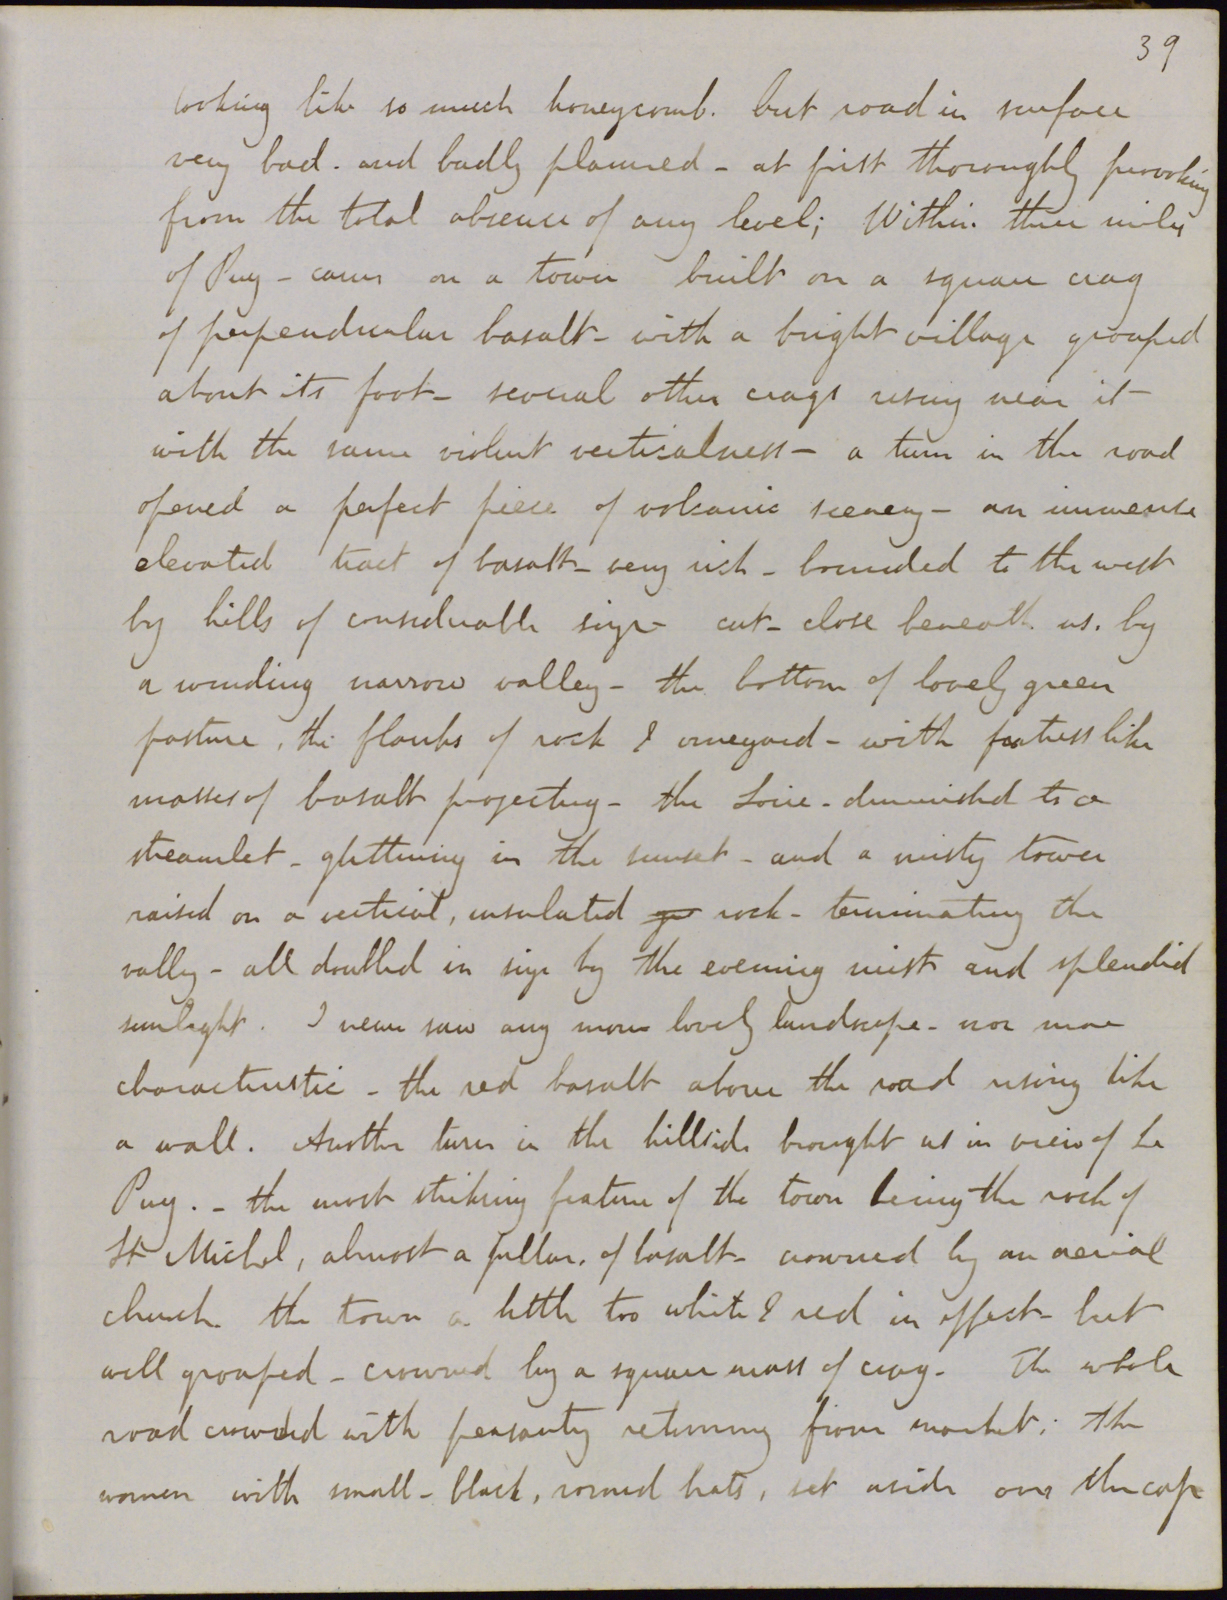 39
looking like so much honeycomb. but road in surface
very bad. and badly planned - at first thoroughly provoking
from the total absence of any level; Within three miles
of Puy - came on a tower built on a square crag
of perpendicular basalt - with a bright village grouped
about its foot - several other crags rising near it -
with the same violent verticalness - a turn in the road
opened a perfect piece of volcanic scenery - an immense
elevated tract of basalt - very rich - bounded to the west
by hills of considerable size - cut - close beneath us. by
a winding narrow valley - the bottom of lovely green
pasture, the flanks of rock & vineyard - with fortress like
masses of basalt projecting - the Loire - diminished to a
streamlet - glittering in the sunset - and a misty tower
raised on a vertical, insulated rock - terminating the
valley - all doubled in size by the evening mist and splendid
sunlight. I never saw any more lovely landscape - nor more
characteristic - the red basalt above the road rising like
a wall. Another turn in the hillside brought us in view of Le
Puy. - the most striking feature of the town being the rock of
St Michel, almost a pillar. of basalt - crowned by an aerial
church. the town a little too white & red in effect - but
well grouped - crowned by a square mass of crag - The whole
road crowded with peasantry returning from market; the
women with small - black, round hats, set aside over the cap